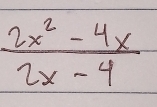 2x² - 4x
2x - 4